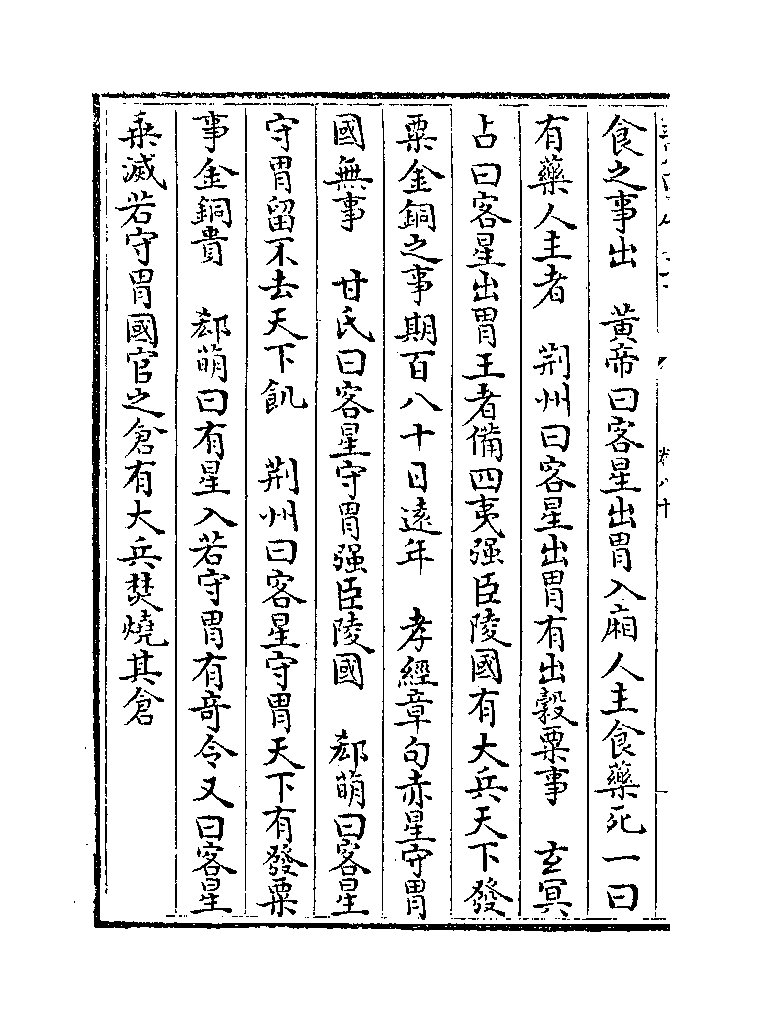 食之事出　黄帝曰客星出胃入廂人主食藥死一曰
有藥人主者　荆州曰客星出胃有出穀粟事　玄冥
占曰客星出胃王者備四夷强臣陵國有大兵天下發
粟金銅之事期百八十日遠年　孝經章句赤星守胃
國無事　甘氏曰客星守胃强臣陵國　郄萌曰客星
守胃留不去天下飢　荆州曰客星守胃天下有發粟
事金銅貴　郄萌曰有星入若守胃有奇令又曰客星
乘滅若守胃國官之倉有大兵焚燒其倉